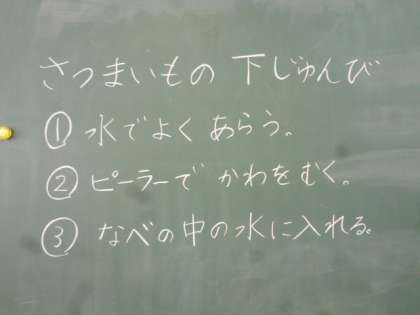 さつまいもの 下じゅんび
① 水でよく あらう。
② ピーラーで かわを むく。
③ なべの 中の 水に 入れる。